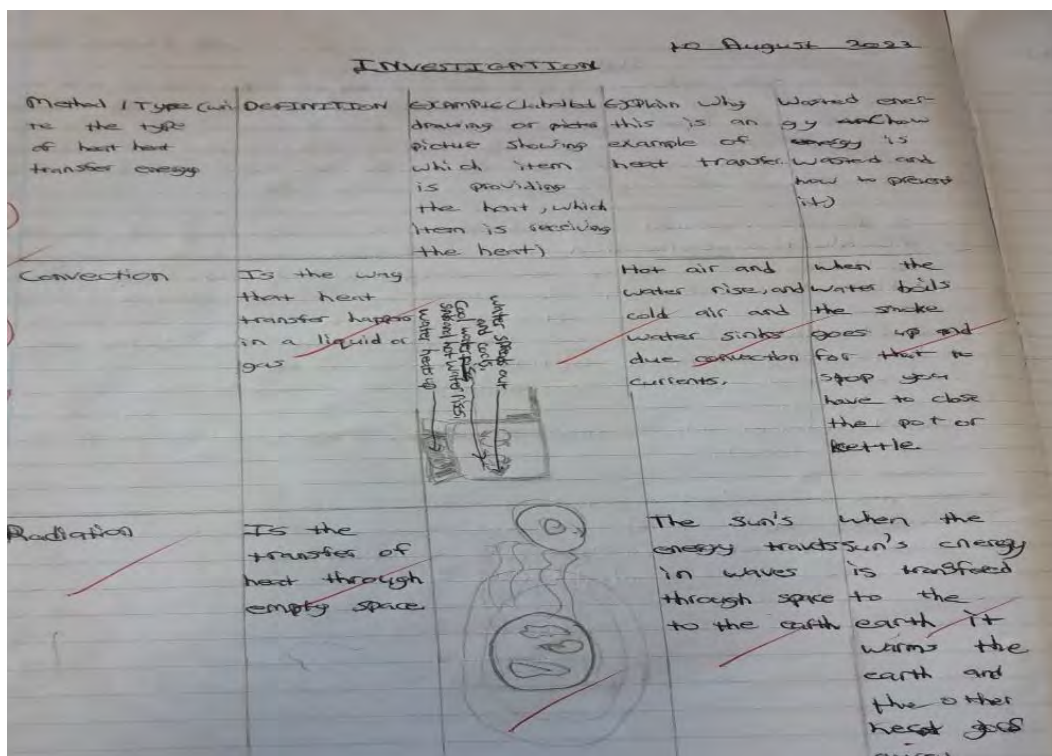 10 August 2023
INVESTIGATION
Method / Type (wri
te the type
of heat heat
transfer energy
DEFINITION
EXAMPLE (labelled
drawing or
picture showing
which item
is providing
the heat, which
item is receiving
the heat)
Explain why
this is an
example of
heat transfer.
Wasted ener-
gy (how
energy is
wasted and
how to prevent
it)
Convection
Is the way
that heat
transfer happens
in a liquid or
gas
water spreads out
and cools
Cool water
hot water rises
water heats up
Hot air and
water rise, and
cold air and
water sinks
due convection
currents.
when the
water boils
the smoke
goes up and
for that to
stop you
have to close
the pot or
kettle
Radiation
Is the
transfer of
heat through
empty space
The sun's
energy travels
in waves
through space
to the earth
when the
sun's energy
is transfered
to the
earth it
warms the
earth and
the other
heat goes